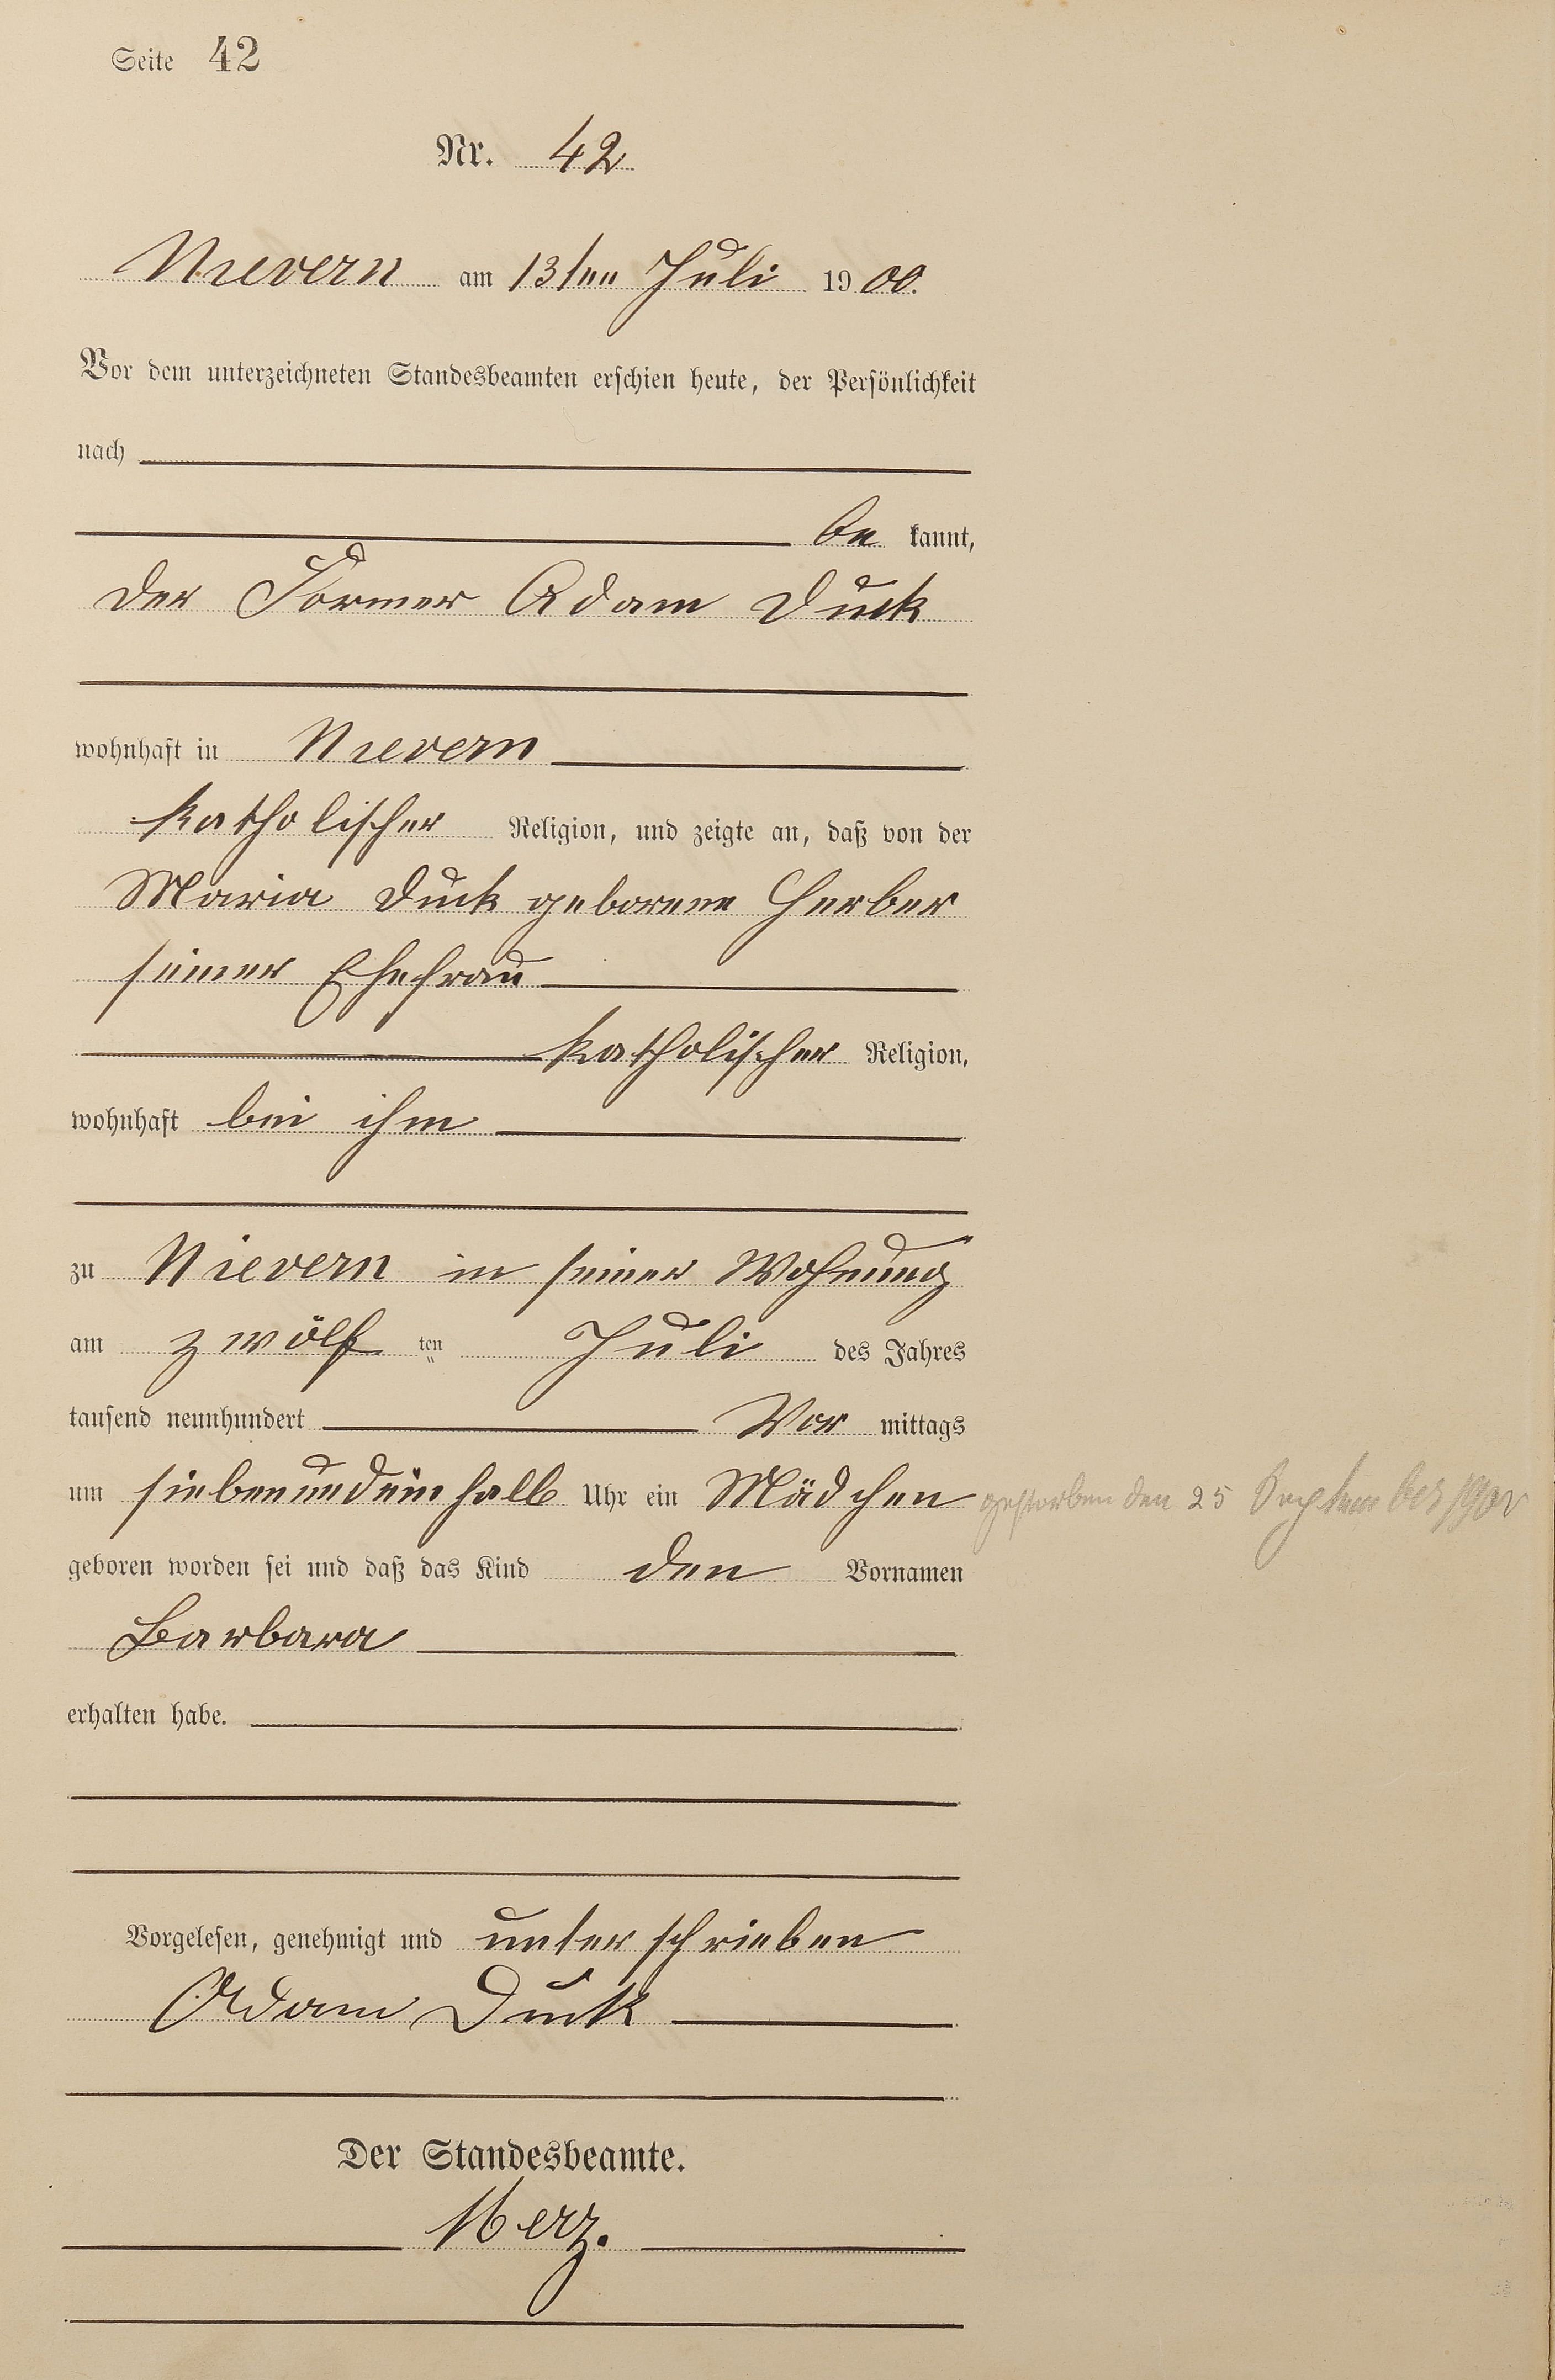 Seite 42
Nr. 42
Nievern am 13ten Juli 1900.
Vor dem unterzeichneten Standesbeamten erschien heute, der Persönlichkeit
nach
be kannt,
der Former Adam Duck
wohnhaft in Nievern
katholischer Religion, und zeigte an, daß von der
Maria Duck geborene Herber
seiner Ehefrau
katholischer Religion,
wohnhaft bei ihm
zu Nievern in seiner Wohnung
am zwölf ten Juli des Jahres
tausend neunhundert Vor mittags
um siebenundeinhalb Uhr ein Mädchen gestorben den 25 September
geboren worden sei und daß das Kind den Vornamen
Barbara
erhalten habe.
Vorgelesen, genehmigt und unterschrieben
Adam Duck
Der Standesbeamte.
Merz.